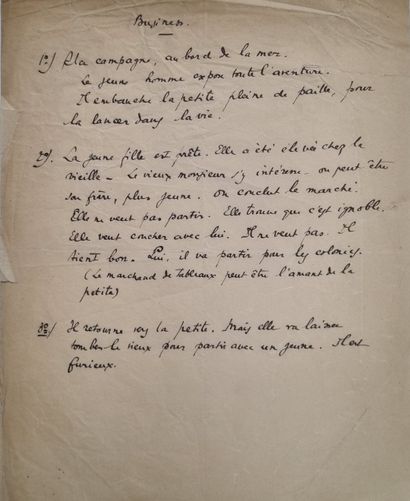 Business.
1º/ A la campagne, au bord de la mer.
Le jeune homme expose toute l'aventure.
Il embauche la petite pleine de paille, pour
la lancer dans la vie.
2º/. La jeune fille est prête. Elle a été élevée chez la
vieille - Le vieux monsieur s'y intéresse - ou peut être
son frère, plus jeune. On conclut le marché.
Elle ne veut pas partir. Elle trouve que c'est ignoble.
Elle veut coucher avec lui. Il ne veut pas. Il
tient bon. Lui, il va partir pour les colonies.
(Le marchand de tableaux peut être l'amant de la
petite)
3º/ Il retourne voir la petite. Mais elle va laisser
tomber le vieux pour partir avec un jeune. Il est
furieux.